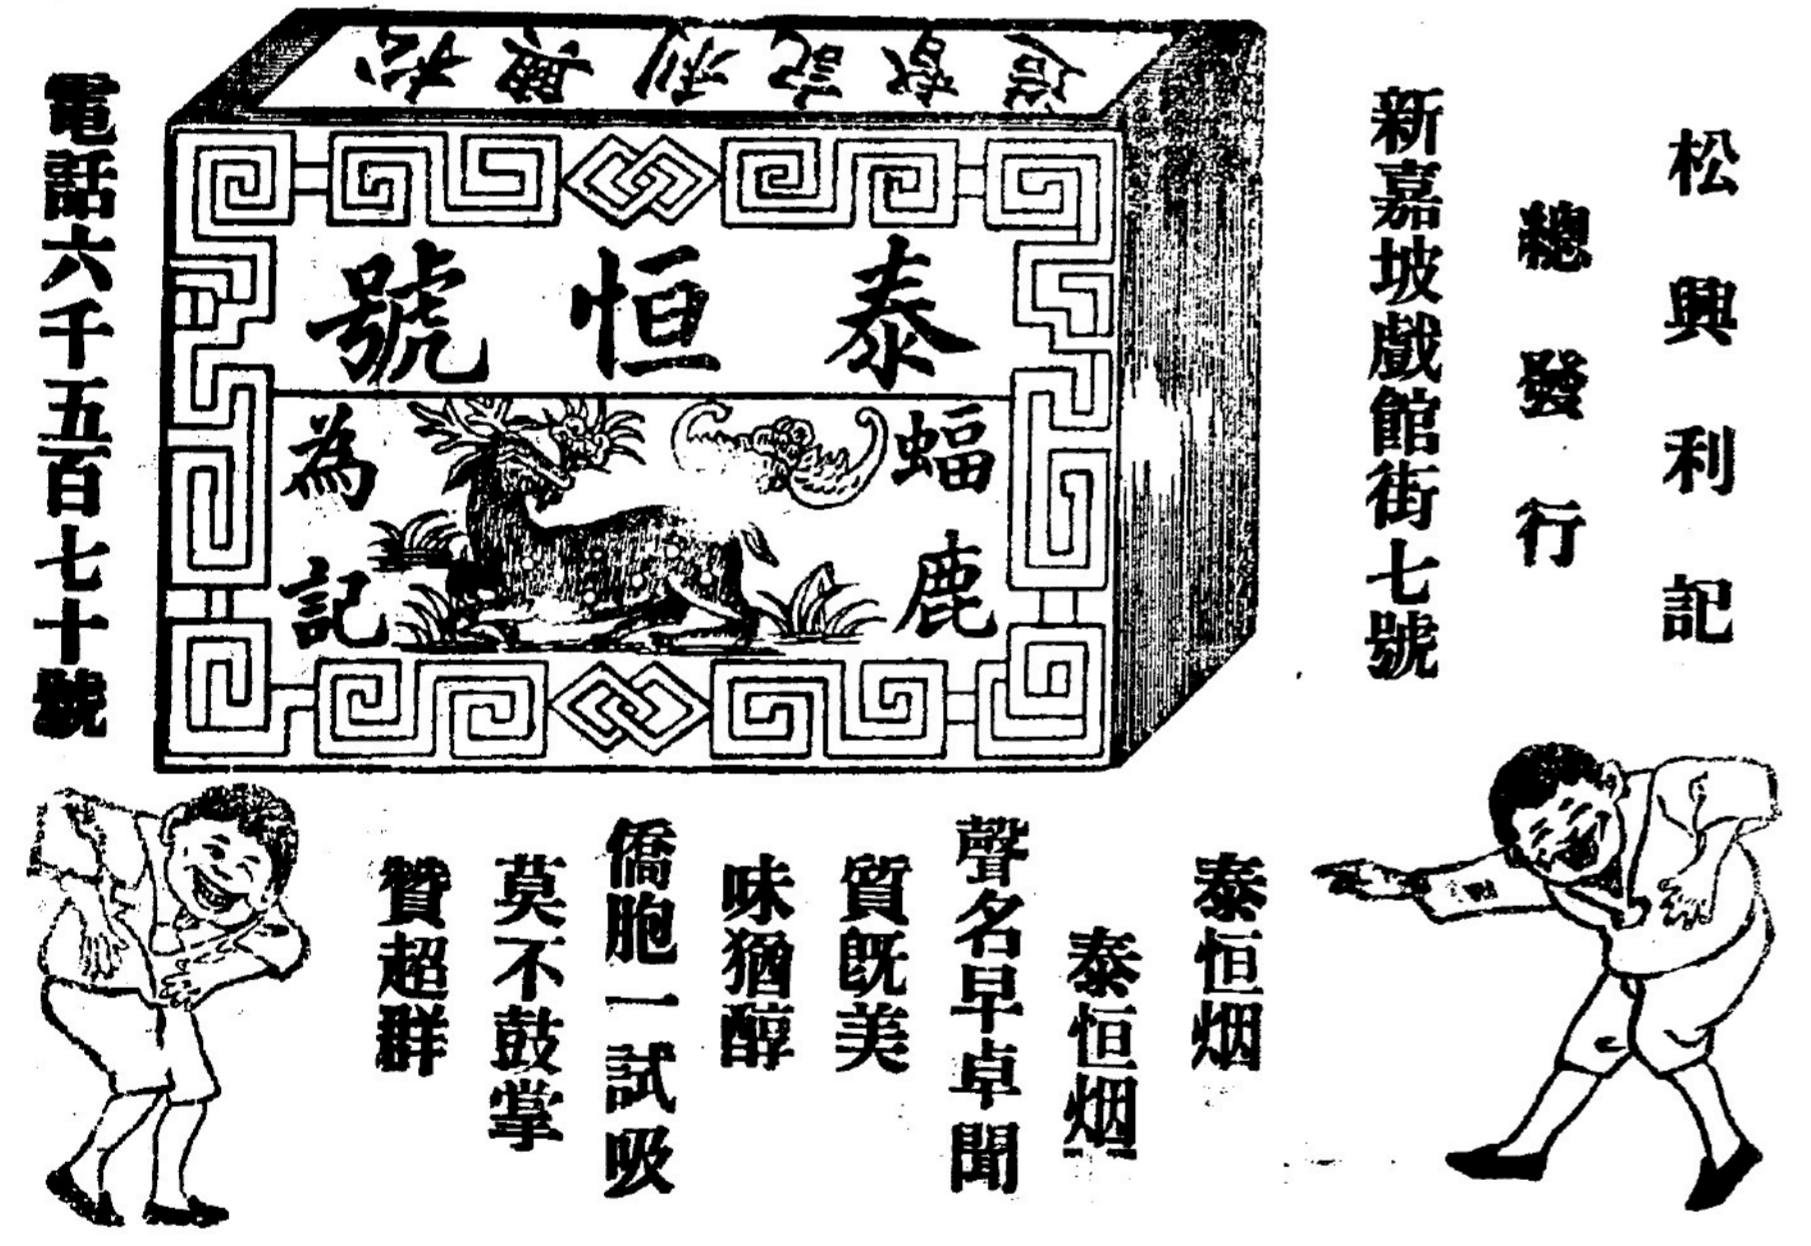 松興利記
總發行
新嘉坡戲館街七號
松興利記督造
泰恒號
蝠鹿
為記
電話六千五百七十號
泰恒烟
泰恒烟
聲名早卓聞
質既美
味猶醇
僑胞一試吸
莫不鼓掌
贊超群